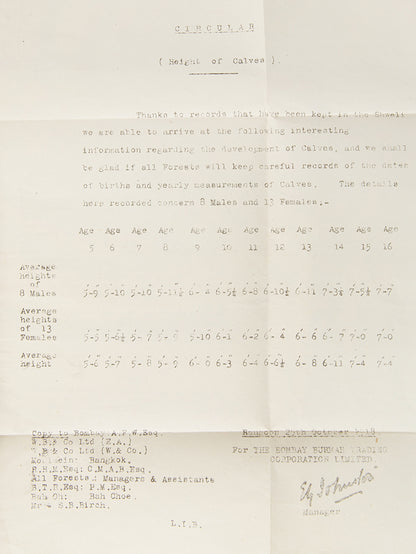 CIRCULAR
( Height of Calves ).
Thanks to records that have been kept in the Shweli
we are able to arrive at the following interesting
information regarding the development of Calves, and we shall
be glad if all Forests will keep careful records of the dates
of births and yearly measurements of Calves. The details
here recorded concern 8 Males and 13 Females;-
Age Age Age Age Age Age Age Age Age Age Age Age
5 6 7 8 9 10 11 12 13 14 15 16
Average
heights
of
8 Males 5'-9" 5'-10" 5'-10" 5'-11½" 6'- 4" 6'-5½" 6'-8" 6'-10½" 6'-11" 7'-3½" 7'-5½" 7'-7"
Average
heights
of 13
Females 5'-5" 5'-6½" 5'- 7" 5'- 9" 5'-10" 6'-1" 6'-2" 6'- 4" 6'- 6" 6'- 7" 7'-0" 7'-0"
Average
height 5'-6" 5'-7" 5'- 8" 5'- 9" 6'- 0" 6'-3" 6'-4" 6'-6½" 6'- 8" 6'- 9" 7'-4" 7'-4"
Copy to Bombay A.P.W.Esq. Rangoon 25th October 1918
W.B.& Co Ltd {E.A.} For THE BOMBAY BURMAH TRADING
W.B & Co Ltd {W.& Co.} CORPORATION LIMITED
Moulmein: Bangkok.
R.H.M.Esq: C.N.A.B.Esq.
All Forests.: Managers & Assistants
B.T.H.Esq: P.M.Esq.
Bah Oh: Bah Choe. Manager
S.B.Birch.
L.I.B.